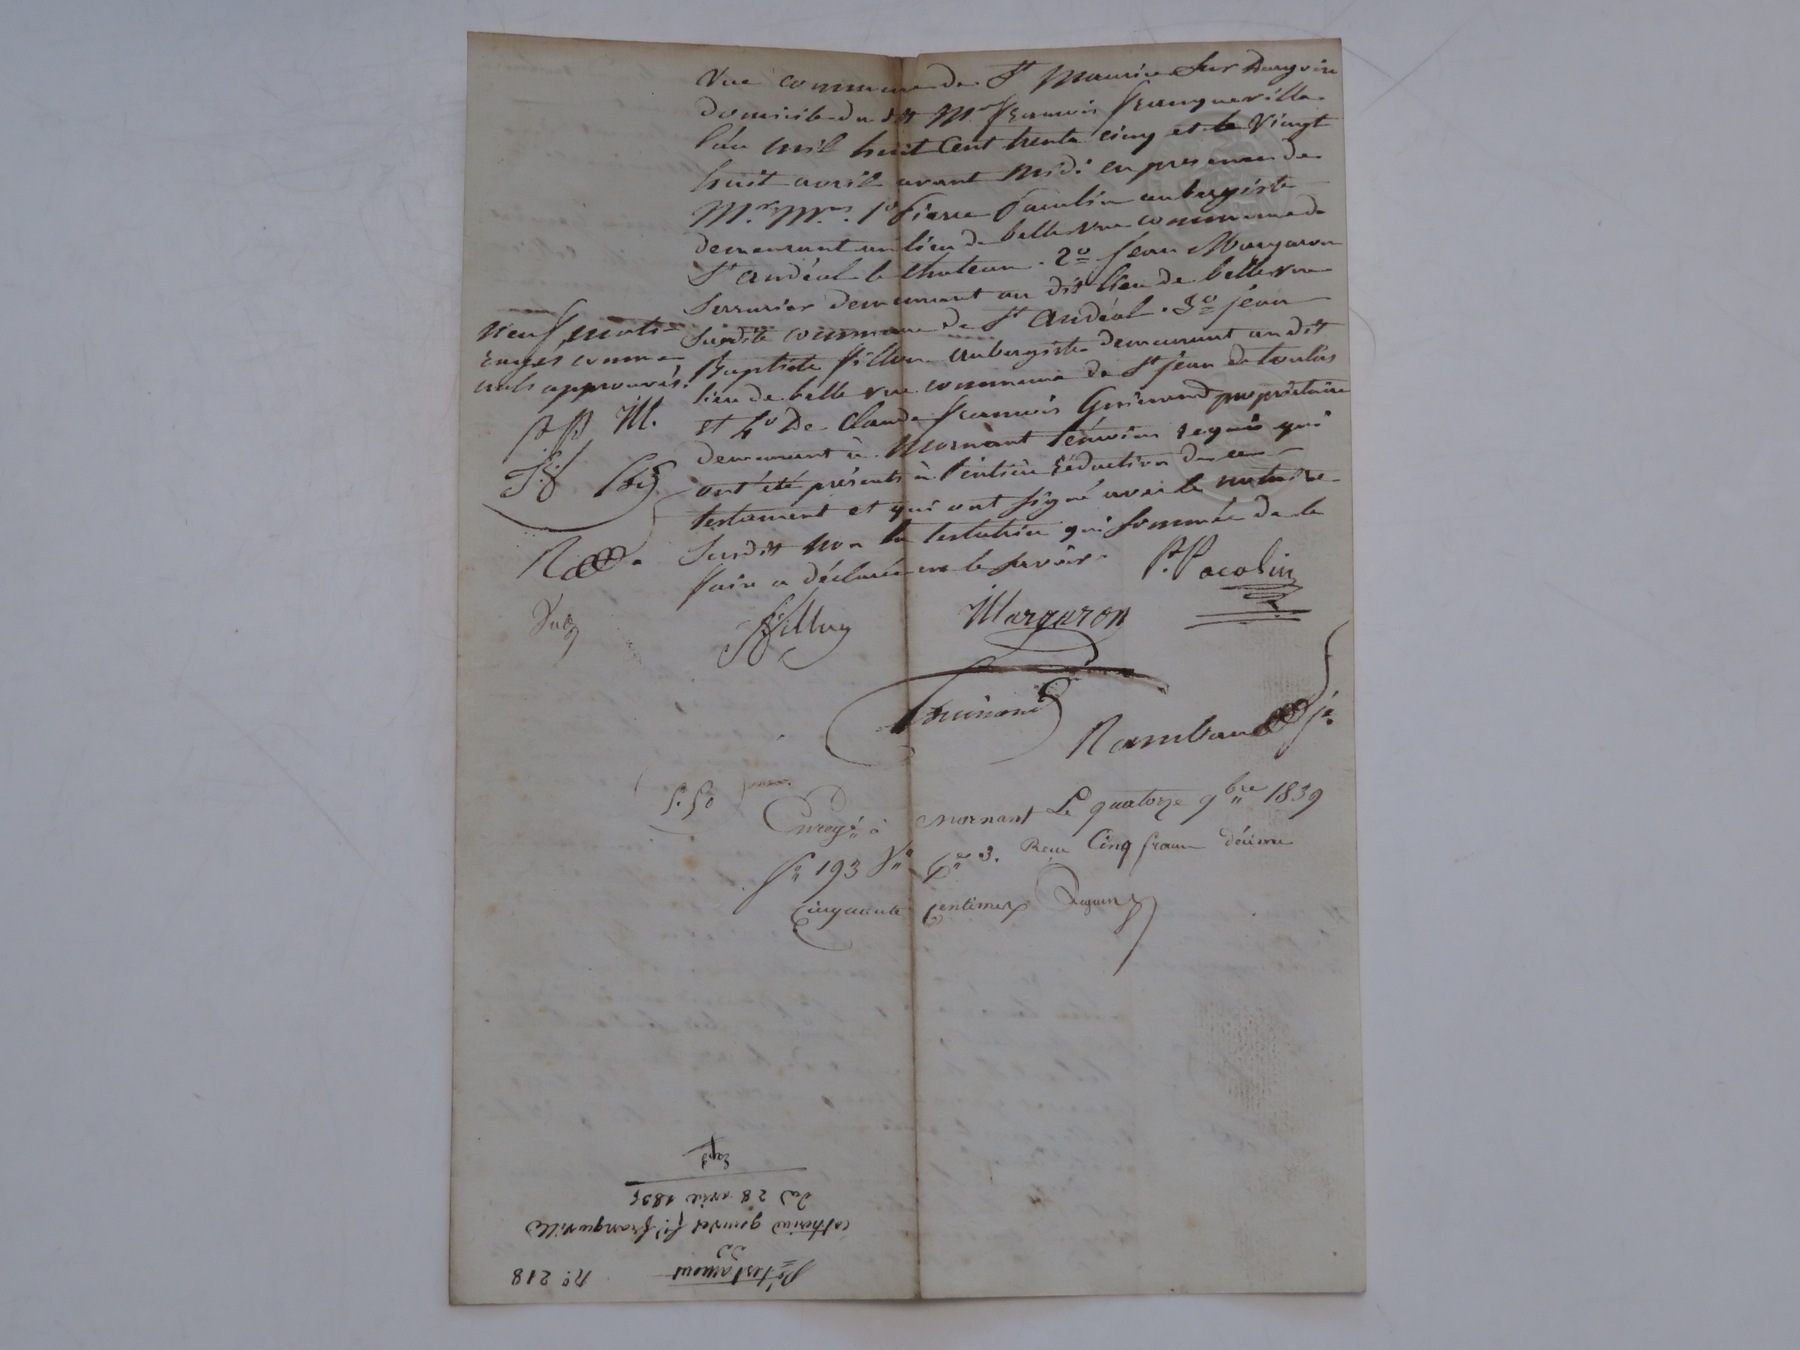 vue commune de St Maurice sur Dargoire
domicile du dit Mr françois françqueville
l'an mil huit cent trente cinq et le vingt
huit avril avant midi en presence de
M.rs 1o pierre Pacolin aubergiste
demeurant au lieu de belle vue commune de
St andéol le chateau. 2o jean Margaron
serrurier demeurant au dit lieu de belle vue
susdite commune de St andéol. 3o jean
Baptiste fillion aubergiste demeurant au dit
lieu de belle vue commune de St jean de toulas
et 4o De Claude françois Guinand propriétaire
demeurant à Mornant témoins requis qui
ont été présents à l'entière rédaction de ce
testament et qui ont signé avec le notaire
susdit non la testatrice qui sommée de le
faire a déclarée ne le savoir.
P. Pacolin
Margaron
Guinand
Rambaud je
neuf mots
rayés comme
nuls approuvés.
p P M.
5.50
Enregé à Mornant Le quatorze 9bre 1839
fo 193 Vo Ce 3. Reçu Cinq francs décime
Cinquante Centimes
No. 218
testament
de
catherine françqueville
du 28 avril 1835
Expd